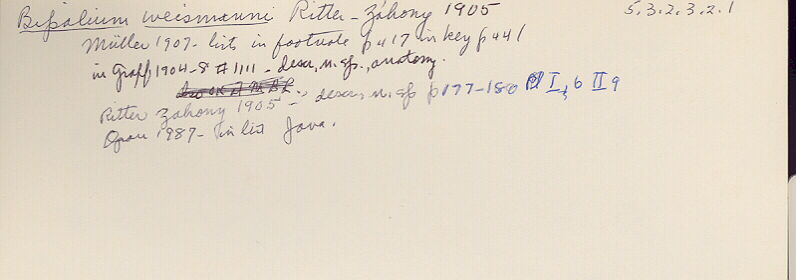 Bipalium weismanni Ritter-Záhony 1905 5.3.2.3.2.1
Müller 1907- lists in footnote p 417 in key p 441
in Graff 1904-8 # 1111 - descr, n.sp., anatomy.
Ritter Zahony 1905 - descr, n.sp p 177-180 Pl I, 6 II 9
1987- in list Java.